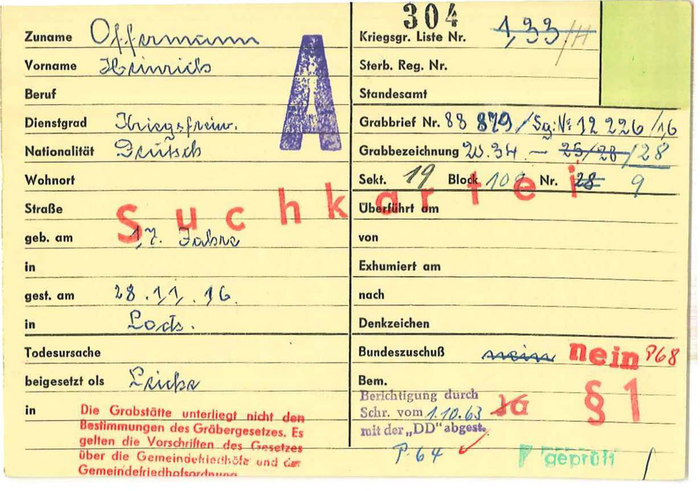 304
Zuname Offermann
Vorname Heinrich
Beruf
Dienstgrad Kriegsfreiw.
Nationalität Deutsch
Wohnort
Straße
geb. am 17 Jahre
in
gest. am 28.11.16.
in Lods.
Todesursache
beigesetzt als Leiche
in
Die Grabstätte unterliegt nicht den
Bestimmungen des Gräbergesetzes. Es
gelten die Vorschriften des Gesetzes
über die Gemeindefriedhöfe und der
Gemeindefriedhofsordnung
A
Suchkartei
Kriegsgr. Liste Nr. 1,33
Sterb. Reg. Nr.
Standesamt
Grabbrief Nr. 88 879/Sg: № 12 226/16
Grabbezeichnung 20.34. – 25/28/28
Sekt. 19 Block 109 Nr. 28 9
Überführt am
von
Exhumiert am
nach
Denkzeichen
Bundeszuschuß nein nein P68
Bem.
Berichtigung durch
Schr. vom 1.10.63
mit der „DD" abgest.
Ja
§ 1
P. 64
geprüft